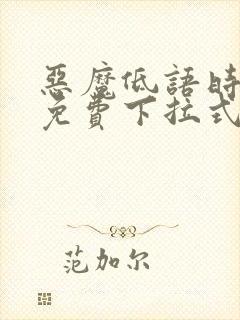 惡魔低語時
免費下拉式
范加尔